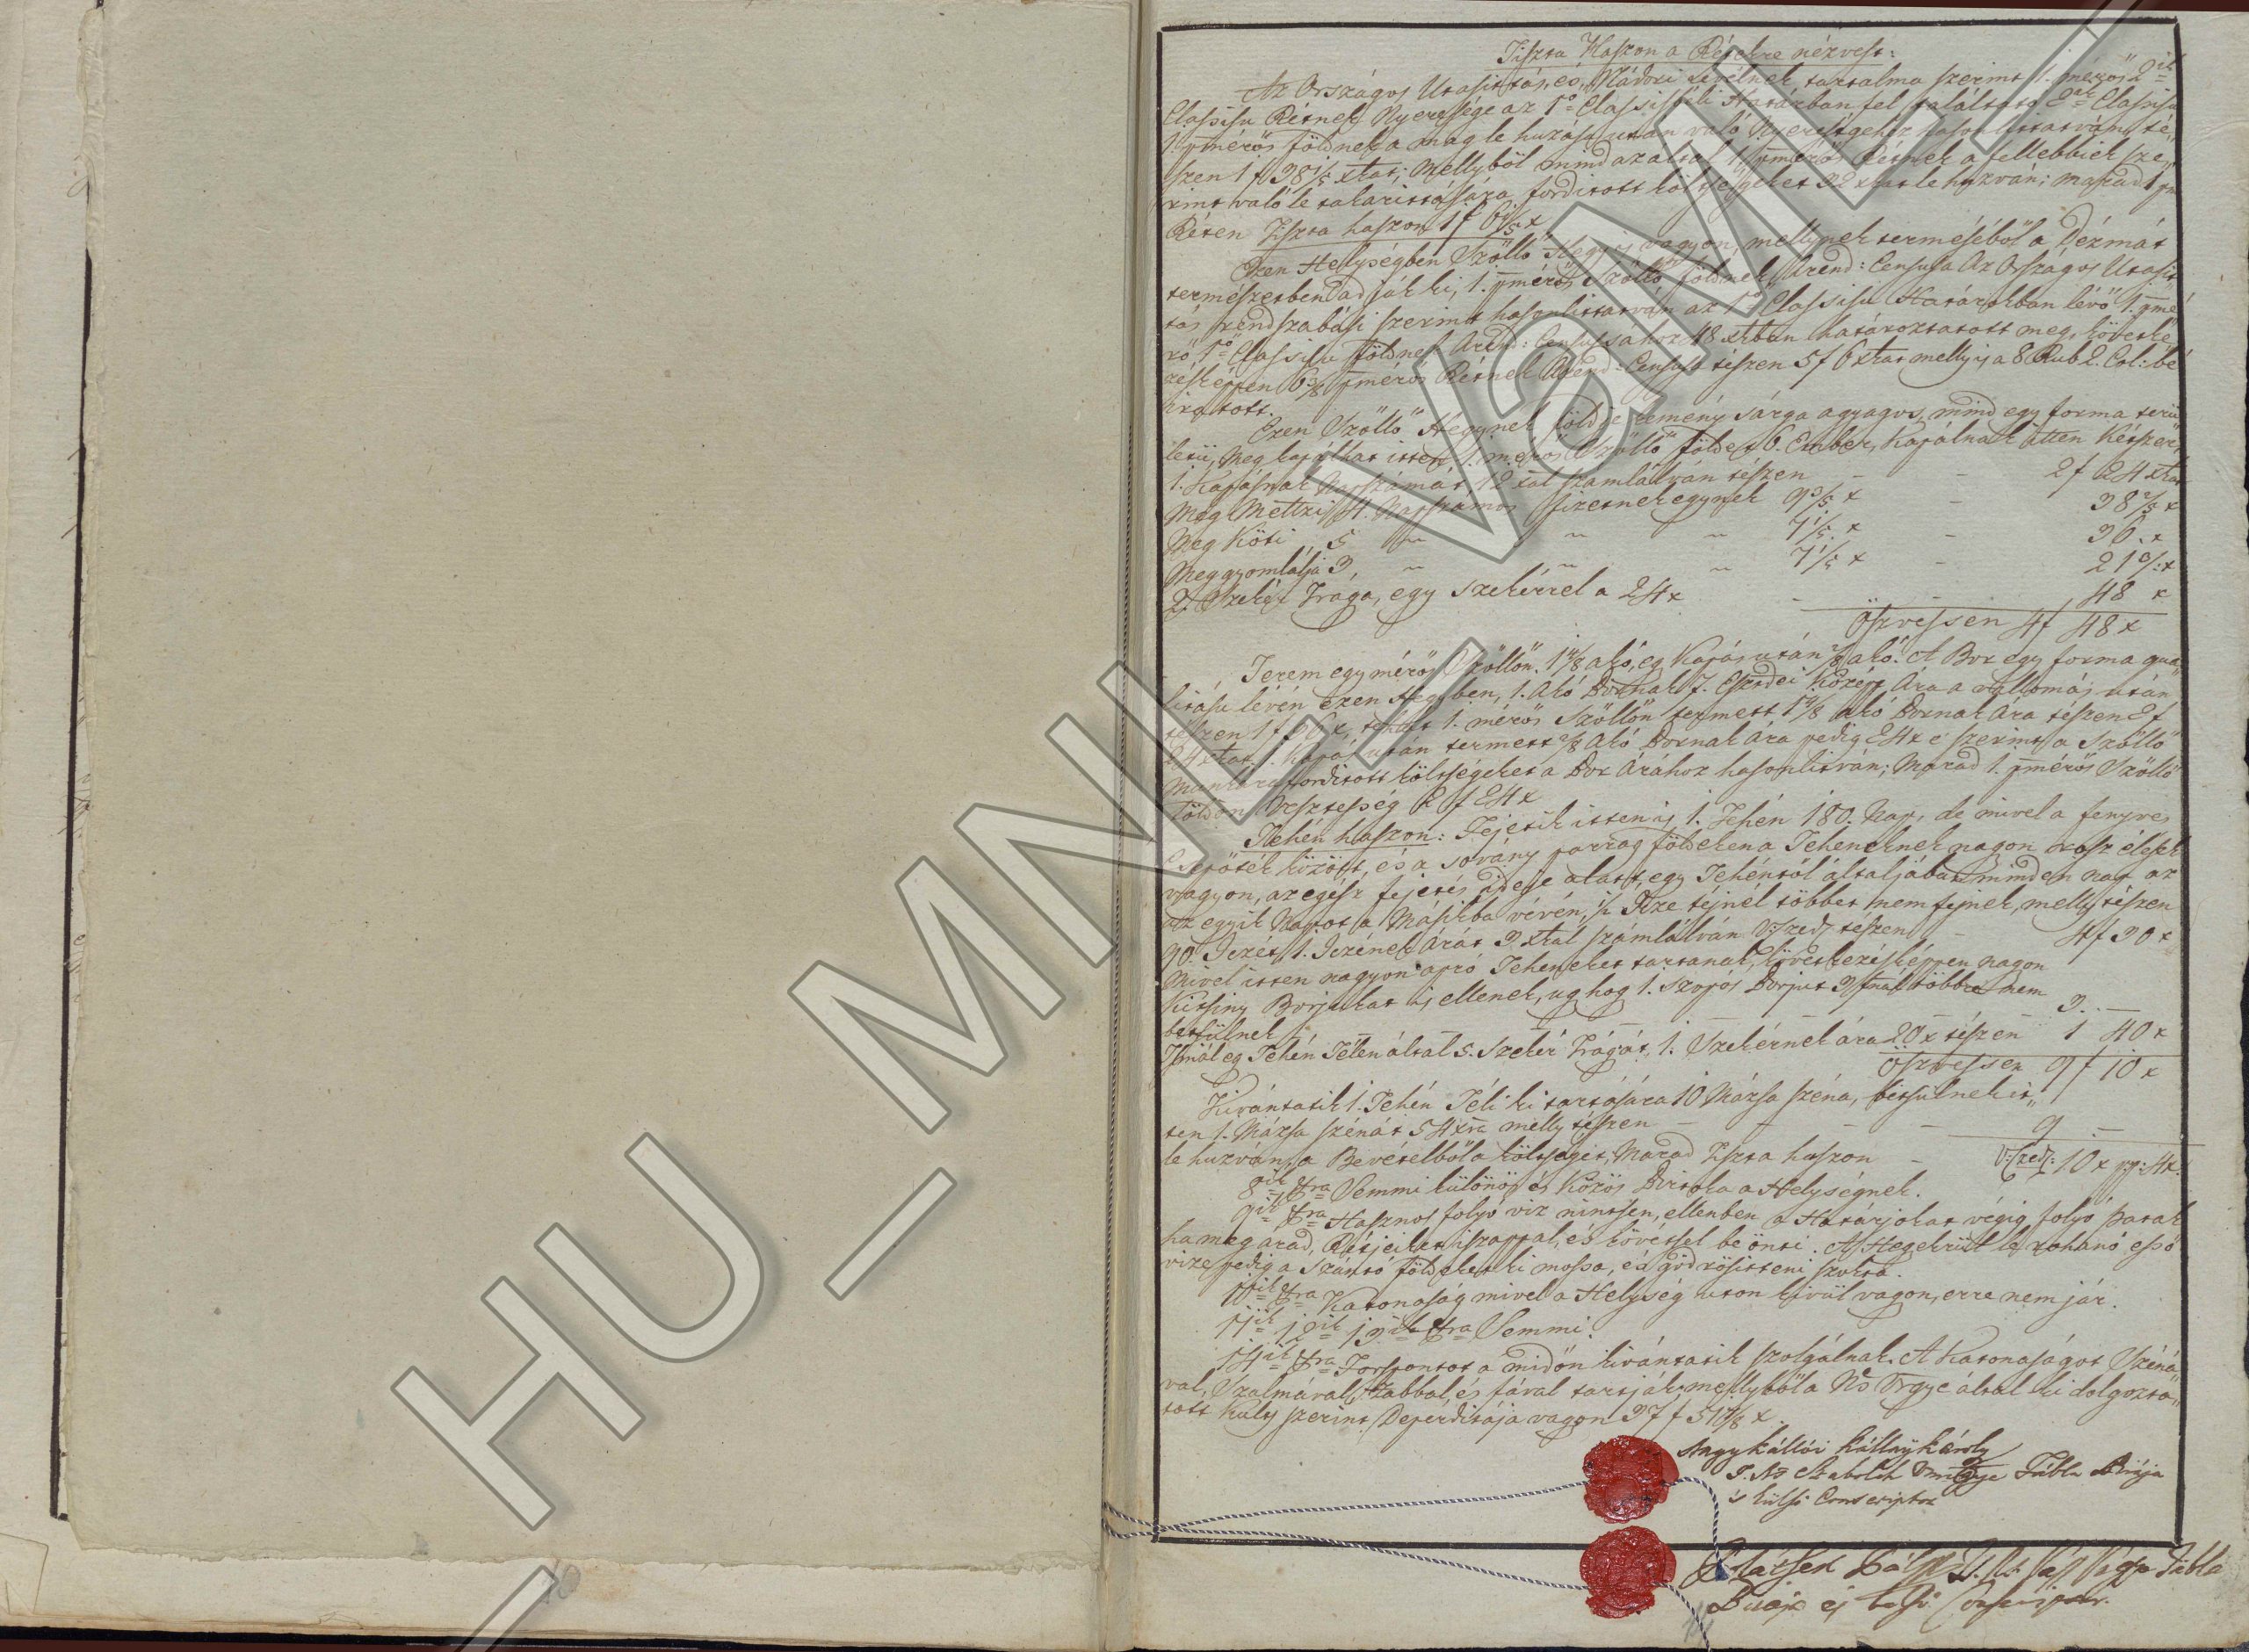 Tiszta Haszon a Rétekre nézvest:
Az Országos Utasittás, és Nádori Levélnek tartalma szerint 1. mérös 2ik
Classisu Rétnek Nyeresége az 1ö Classisbéli Határban fel találtató 2ik Classisu
1. pmérös földnek a mag le huzása után való Nyereségéhez hasonlittatván té„
szen 1 f 38 1/5 xkat; mellyböl mind az által 1 pmérös Rétnek a fellebbiek sze„
rint való le takarittására forditott költségeket 32 xkat le huzván; marad 1 pm
Réten Tiszta haszon 1 f 6 1/5 x
Ezen Helységben Szöllö Hegy is vagyon, mellynek terméséböl a Dézmát
természetben adják ki, 1. pmérös Szöllö földnek Arend: Censusa Az Országos Utasit
tás rendszabási szerint hasonlittatván az 1ö Classisu Határokban lévö 1. pmé
rö 1ö Classisu földnek Arend: Censussához 48 xkban határoztatott meg, követke
zésképpen 6 3/8 pmérös Rétnek Arend: Censusa tészen 5 f 6 xkat melly is a 8 Rub 2. Col: bé
iratott.
Ezen Szöllö Hegynek földje kemény sárga agyagos, mind egy forma terü
letü, Meg kapálhat itten 1. mérös Szöllö földet 6. Ember, Kapálnak itten Kétszer,
1. Kapásnak Napszámát 12 xal számlálván tészen - - 2 f 24 xkat
Meg Mettzi 4. Napszámos fizetnek egynek 9 3/5 x - 38 2/5 x
Meg Köti 5 ~ ~ ~ 7 1/5 x - 36. x
Meg gyomlálja 3, ~ ~ ~ 7 1/5 x - 21 3/5 x
2. Szekér Trága, egy szekérrel a 24 x - - 48 x
Öszvessen 4 f 48 x
Terem egy mérös Szöllön 1 4/8 akó, eg Kapás után 2/8 akó. A Bor egy forma qua„
litásu lévén ezen Hegyben, 1. Akó Bornak 7. Esztdei Közép Ára a vallomás után
tészen 1 f 36 x, tehát 1. mérös Szöllön termett 1 4/8 akó Bornak Ára tészen 2 f
24 xkat, 1. Kapás után termett 2/8 Akó Bornak Ára pedig 24 x e szerint a Szöllö
Munkára forditott költségeket a Bor Árához hasonlitván; Marad 1. pmérös Szöllö
földön Vesztesség 2 f 24 x
Tehén haszon: Fejetik itten is 1. Tehén 180. Nap, de mivel a fenyves
Tsepöték között, és a sovány parrag földeken a Teheneknek nagon rosz élések
vagyon, az egész fejetés ideje alatt egy Tehéntöl általjában minden nap az
az egyik Napot a Másikba vévén, 1/2 Itze téjnél többet nem fejnek, melly tészen
90. Itzét, 1. Itzének Árát 3 xkal számlálván V:Szedj tészen - 4 f 30 x
Mivel itten nagyon apró Teheneket tartanak, következésképpen nagon
Kitsiny Borjukat is ellenek, ug hog 1. szopós Borjut 3 fnál többre nem
betsülnek - - - - - 3. —
Tsinál eg Tehén Télen által 5. szekér Trágát, 1. Szekérnek ára 20 x tészen 1 40 x
Öszvessen 9 f 10 x
Kivántatik 1. Tehén Téli ki tartására 10 Mázsa széna, betsülnek it„
ten 1. Mázsa szénát 54 xra melly tészen - - - - 9 —
le huzván, a Bevételböl a költségét, Marad Tiszta haszon - V:Szedj: 10 x pp: 4 x.
8ik §ra Semmi különös és Közös Birtoka a Helységnek.
9ik §ra Hasznos folyó viz nintsen, ellenben a Határjokat végig folyó Patak
ha meg árad, Rétjeiket iszappal, és követsel be önti. A Hegekrül le rohanó essö
vize pedig a Szántó földeket ki mossa, és gödrösitteni szokta.
10ik §ra Katonaság mivel a Helység uton kivül vagon, erre nem jár.
11ik 12ik 13ik §ra Semmi.
14ik §ra Forspontot a midön kivántatik szolgálnak. A Katonaságot Széná„
val, Szalmával, Zabbal, és fával tartják, mellyböl a Ns Vrgye által ki dolgozta„
tott Kulcs szerint Deperditája vagon 37 f 51 7/8 x.
Nagy Kállói Kállay Károly
T. Ns Szabolch Vmegye Tábla Birája
's külsö Conscriptor
Pál
Tábla
Birája és belsö Conscriptor.